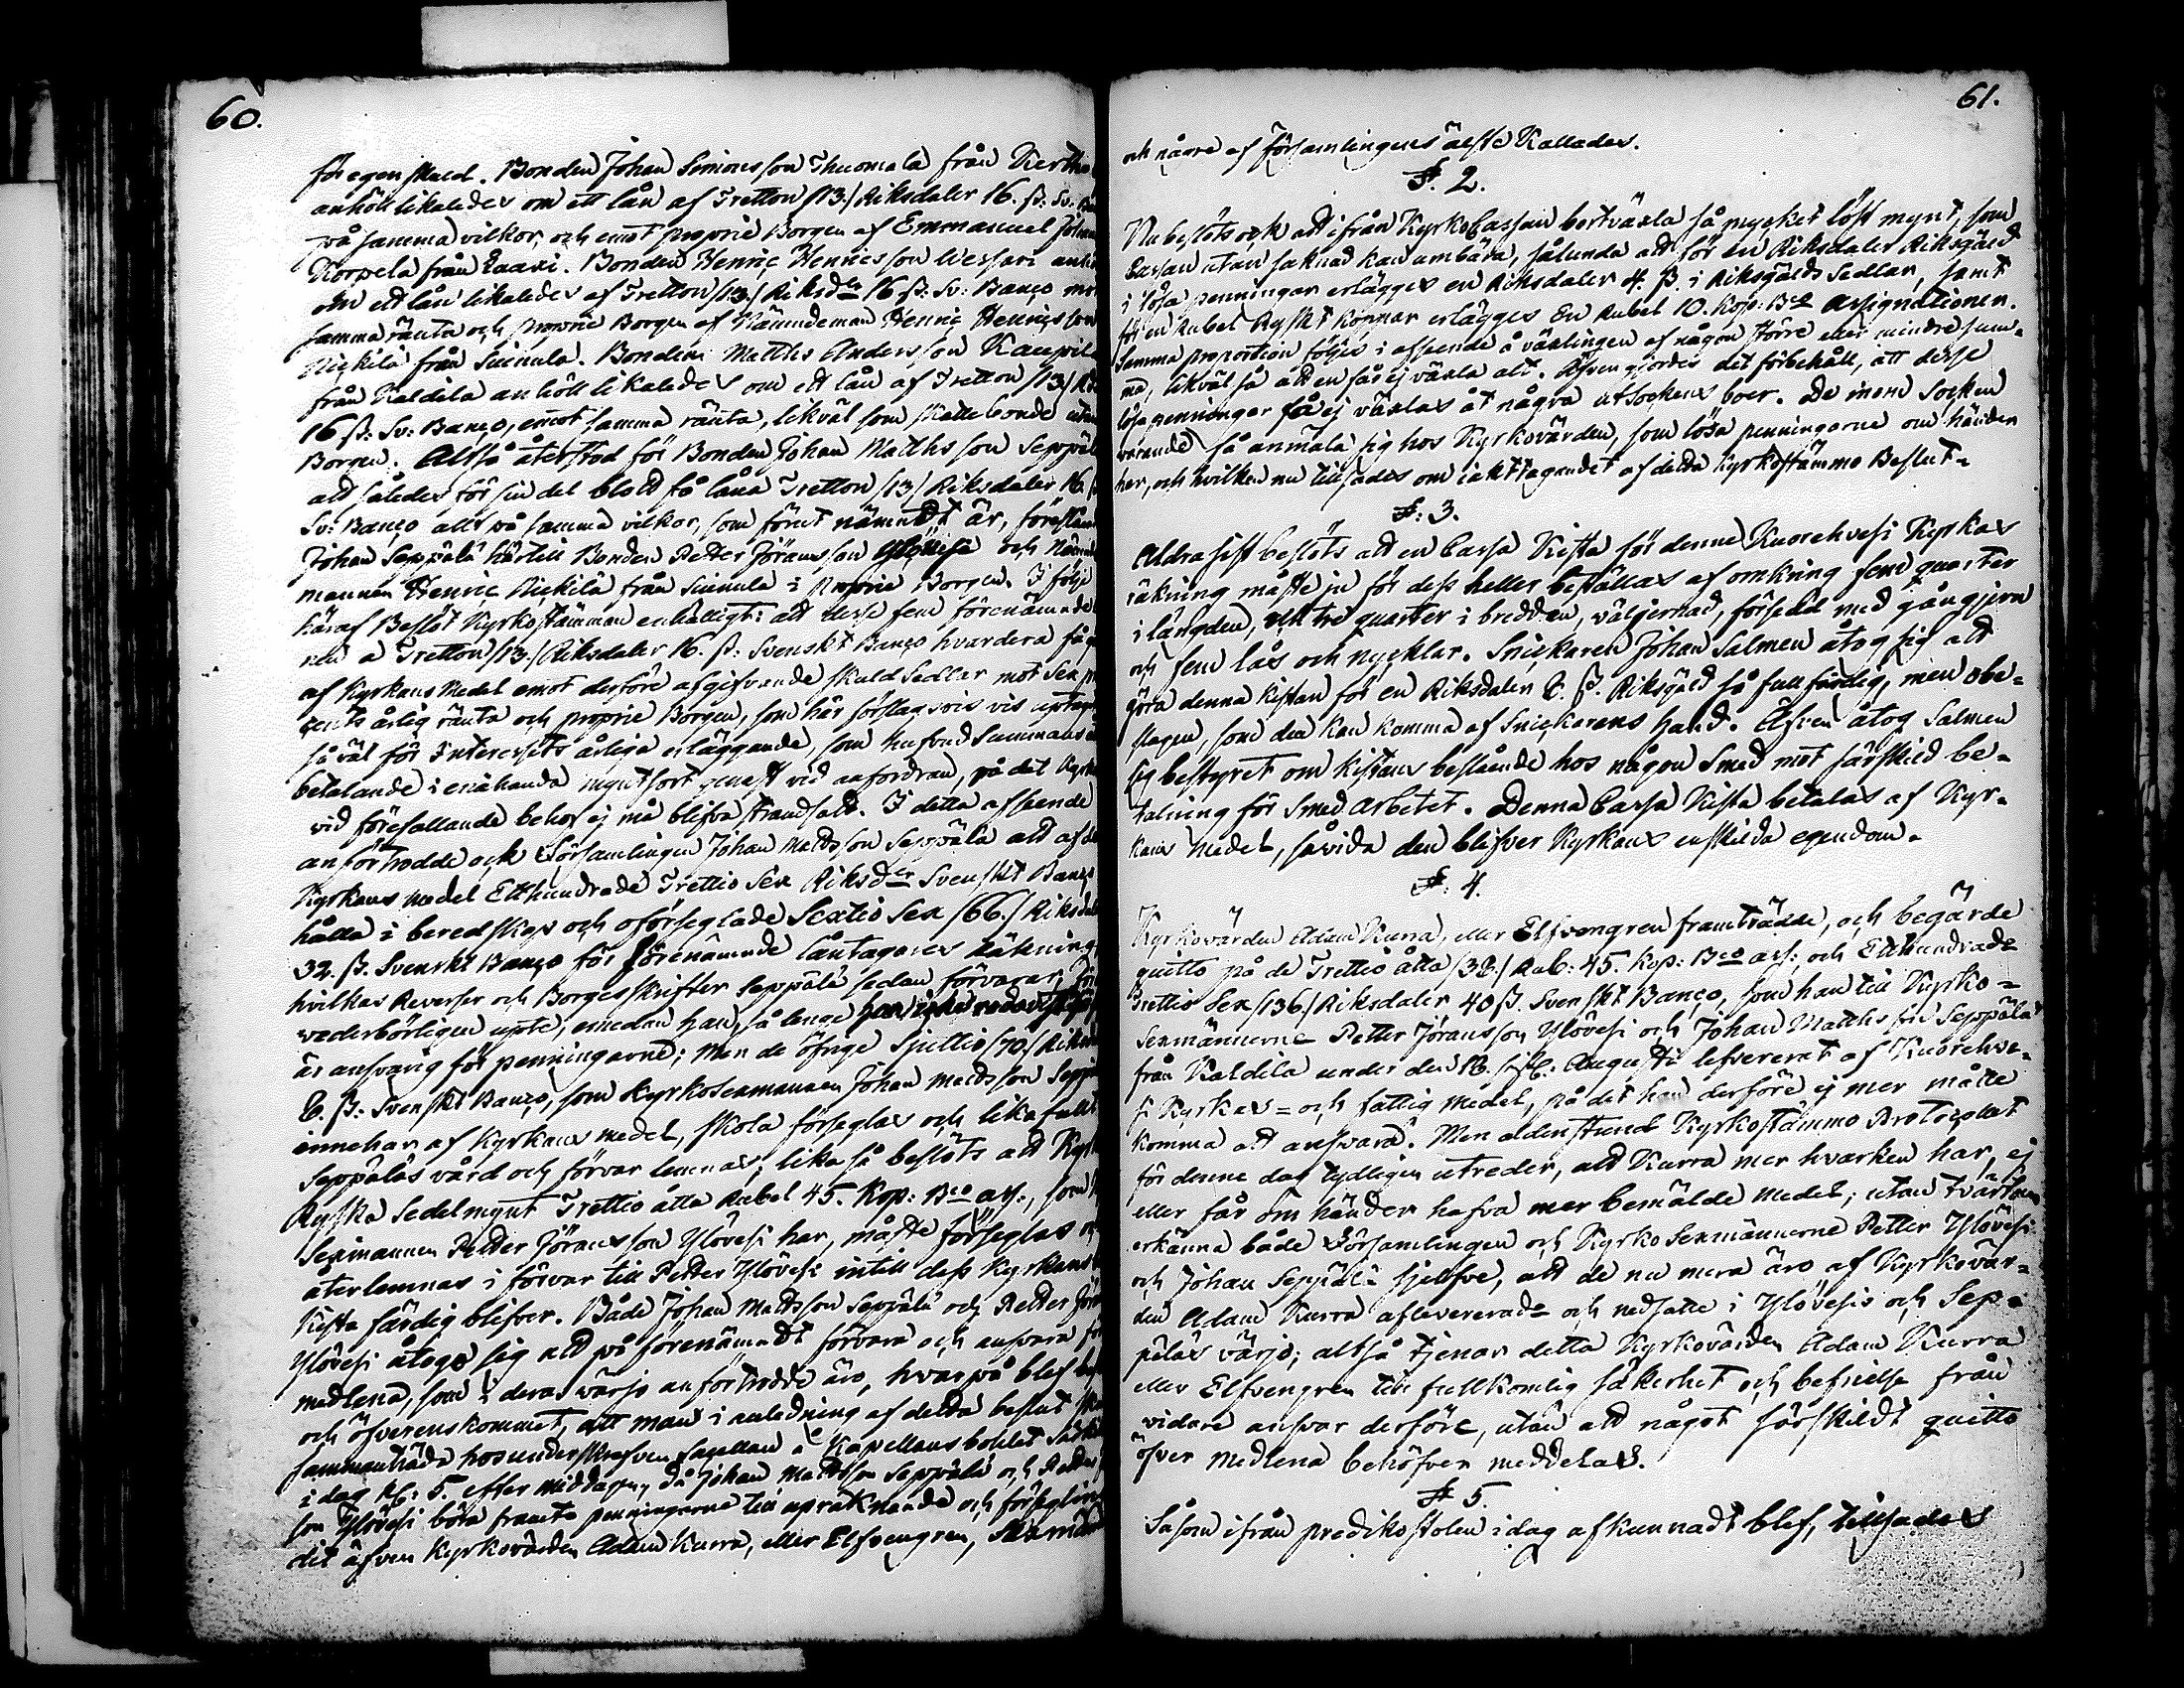 60.
för egen skuld. Bonden Johan Simonsson Thuomala från
anhöll likaledes om ett lån af Tretton /13./ Riksdaler 16. ß: Sv:
på samma vilkor, och emot proprie Borgen af Emmanuel
Korpela från Laasi. Bonden Henric Henricsson Wessari
om ett lån likaledes af Tretton /13./ Riksdr 16 ß: Sv: Banco
samma ränta och proprie Borgen af Nämndeman Henric Henricsson
Nickilä från Suinula. Bonden Matths Andersson
från Kaldila anhöll likaledes om ett lån af Tretton /13/
16 ß: Sv: Banco, emot samma ränta, likväl som skattebonde utan
Borgen. Altså återstod för Bonden Johan Matthsson Seppälä
att således för sin del blott få låna Tretton /13/ Riksdaler 16.
Sv: Banco allt på samma vilkor, som förut nämndt är,
Johan Seppälä härtill Bonden Petter Jöransson Ylövesi och
mannen Henric Nickilä från Suinula i Proprie Borgen. I följe
häraf Beslöt Kyrkostämman enhälligt: att desse fem förenämnde
a Tretton /13./ Riksdaler 16. ß: Svenskt Banco hvardera få
af Kyrkans Medel emot derföre afgifvande skuld Sedlar mot Sex
cents årlig ränta och proprie Borgen, som här förslagsvis
så väl för Interessets årliga erläggande, som hufvud Summans
betalande i enahanda myntsort genast vid anfordran, på det
vid förefallande behof ej må blifva strandsatt. I detta afseende
anförtrodde ock Församlingen Johan Mattsson Seppälä att af
Kyrkans medel Etthundrade Trettio Sex Riksdr Svenskt Banco
hålla i beredskap och oförseglade Sextio Sex /66./
32. ß. Svenskt Banco för förenämnde låntagares räkning
hvilkas Reverser och Borgesskrifter Seppälä sedan förvarar,
vederbörligen upte, emedan han, så länge
är ansvarig för penningarne; Men de öfrige Sjuttio /70./
8. ß: Svenskt Banco, som Kyrkosexmannen Johan Mattsson
innehar af Kyrkans medel, skola förseglas och lika fullt
Seppäläs vård och förvar lemnas; lika så beslöts att
Ryska Sedelmynt Trettio åtta Rubel 45. Kop: Bco ass:, som
Sexmannen Petter Jöransson Ylövesi har, måste förseglas
återlemnas i förvar till Petter Ylövesi intill dess Kyrkans
Kista färdig blifver. Både Johan Mattsson Seppälä och Petter
Ylövesi åtogo sig att på förenämndt förvara och ansvara
medlena, som i deras värjo anförtrodde äro, hvarpå blef
och öfverenskommet, att man i anledning af detta beslut
sammanträda hos underskrefven Sacellan å Kapellansbohlet
i dag kl: 5. efter middagen, då Johan Mattsson Seppälä och
son Ylövesi böra framte penningarne till uppräknande och
det äfven Kyrkovärden Adam Kurra, eller Elfvengren,
61.
och någre af Församlingens älste Kallades.
§. 2.
Nu beslöts ock att ifrån KyrkoCassan bortväxla så mycket löst mynt, som
Cassan utan saknad kan umbära, sålunda att för en Riksdaler Riksgäld
i lösa penningar erlägges en Riksdaler 4. ß. i Riksgälds Sedlar, samt
för en Rubel Ryskt Koppar erlägges En Rubel 10. Kop: Bco Assignationer.
Samma proportion följes i afseende å växlingen af någon större eller mindre sum-
ma, likväl så att en får ej växla alt. Äfven gjordes det förbehåll, att desse
lösa penningar få ej växlas åt någre utsockens boer. De inom Socken
varande få anmäla sig hos Kyrkovärden, som lösa penningarne om händer
har, och hvilken nu tillsades om iakttagandet af detta Kyrkostämmo Beslut-
§: 3.
Aldrasist beslöts att en Cassa Kista för denne Kuorehvesi Kyrkas
räkning måste ju för dess heller beställas af omkring fem quarter
i längden, tre quarter i bredden, väljernad, försedd med gångjern
och fem lås och nycklar. Snickaren Johan Salmen åtog sig att
göra denna kistan för en Riksdaler 8. ß. Riksgäld så fullfärdig, men obe-
slagen, som den kan komma af Snickarens hand. Äfven åtog Salmen
sig bestyret om kistans beslående hos någon Smed mot särskild be-
talning för Smed arbetet. Denna Cassa Kista betalas af Kyr-
kans Medel, såvida den blifver Kyrkans enskilda egendom.
§: 4.
Kyrkovärden Adam Kurra, eller Elfvengren framträdde, och begärde
quitto på de Trettio åtta /38./ Rub: 45. Kop: Bco ass:, och Etthundrade
Trettio Sex /136./ Riksdaler 40 ß. Svenskt Banco, som han till Kyrko-
Sexmännerne Petter Jöransson Ylövesi och Johan Matthsson Seppälä
från Kaldila under den Augusti lefvererat af Kuorehve-
si Kyrkas- och fattig Medel, på det han derföre ej mer måtte
komma att ansvara. Men aldenstund Kyrkostämmo Protocollet
för denne dag tydligen utreder, att Kurra mer hvarken har, ej
eller får om händer hafva mer bemälde medel; utan tvärtom
erkänna både Församlingen och Kyrko Sexmännerne Petter Ylövesi
och Johan Seppälä sjelfve, att de nu mera äro af Kyrkovär-
den Adam Kurra aflevererade och nedsatte i Ylövesis och Sep-
päläs värjo; altså tjenar detta Kyrkovärden Adam Kurra
eller Elfvengren till fullkomlig säkerhet och befrielse från
vidare ansvar derföre, utan att något särskildt quitto
öfver medlena behöfver meddelas.
§ 5.
Såsom ifrån predikostolen i dag afkunnadt blef, tillsades